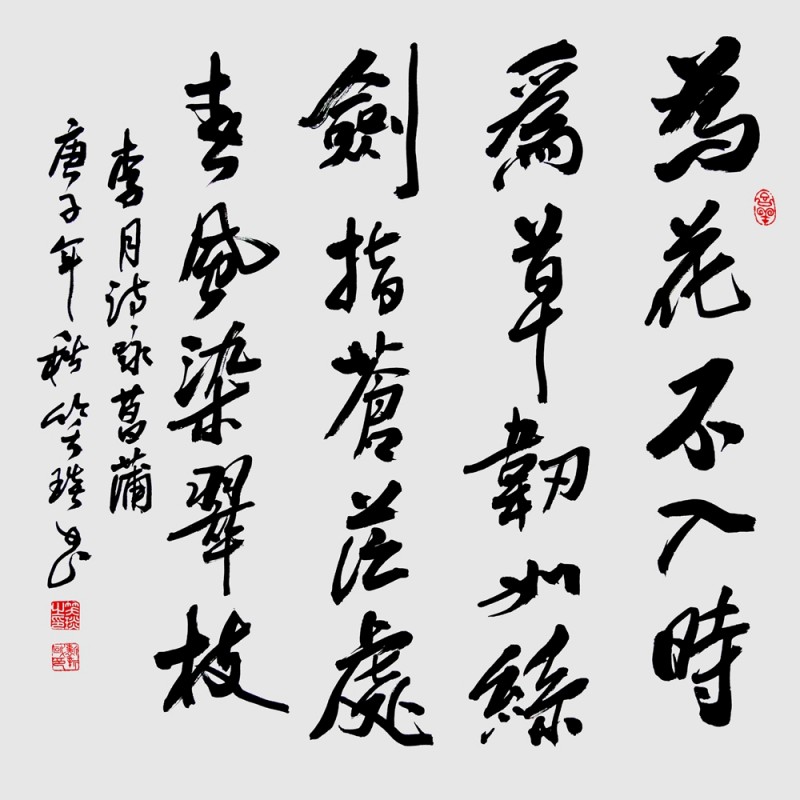 為花不入時
爲草韌如絲
劍指蒼茫處
春風染翠枝
李月诗咏菖蒲
庚子年秋笑琰书